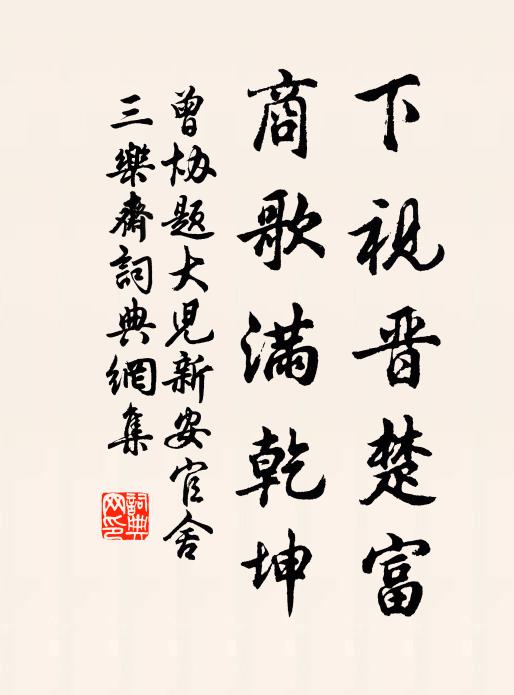 下視晋楚富
商歌滿乾坤
曾协题大児新安官舍
三樂齋詞典網集
詞典网印